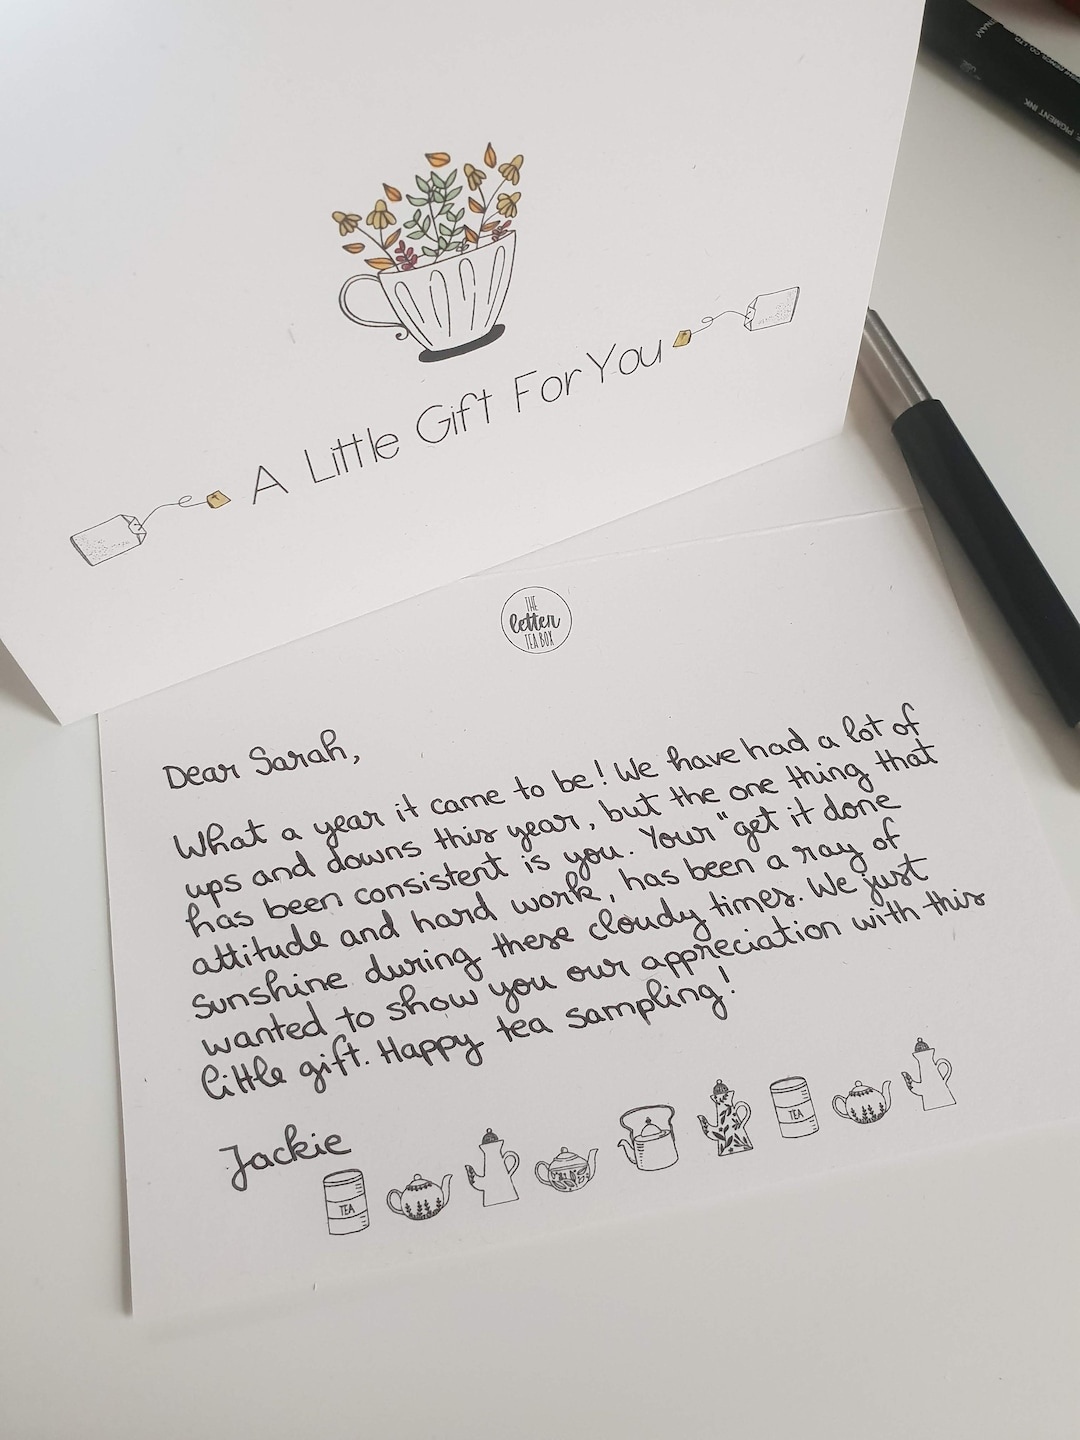 PIGMENT INK
A Little Gift For You
THE
letter
TEA BOX
Dear Sarah,
What a year it came to be! We have had a lot of
ups and downs this year, but the one thing that
has been consistent is you. Your "get it done
attitude and hard work, has been a ray of
sunshine during these cloudy times. We just
wanted to show you our appreciation with this
little gift. Happy tea sampling!
Jackie
TEA
TEA